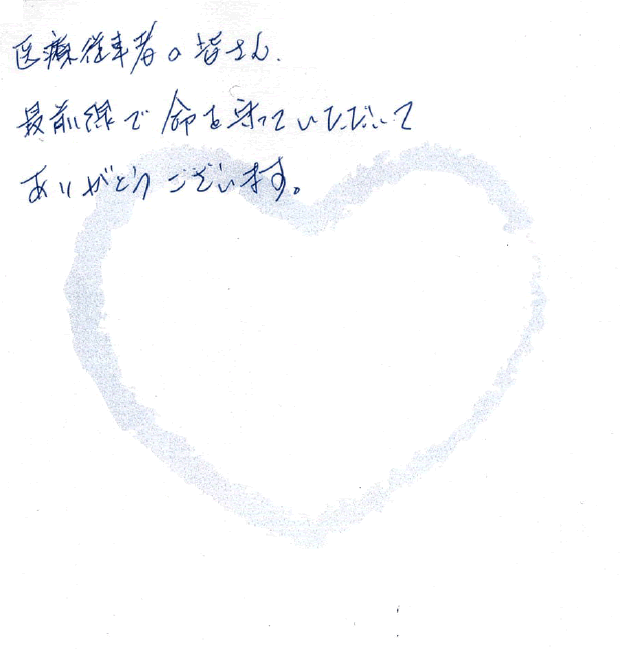 医療従事者の皆さん、
最前線で命を守っていただいて
ありがとうございます。